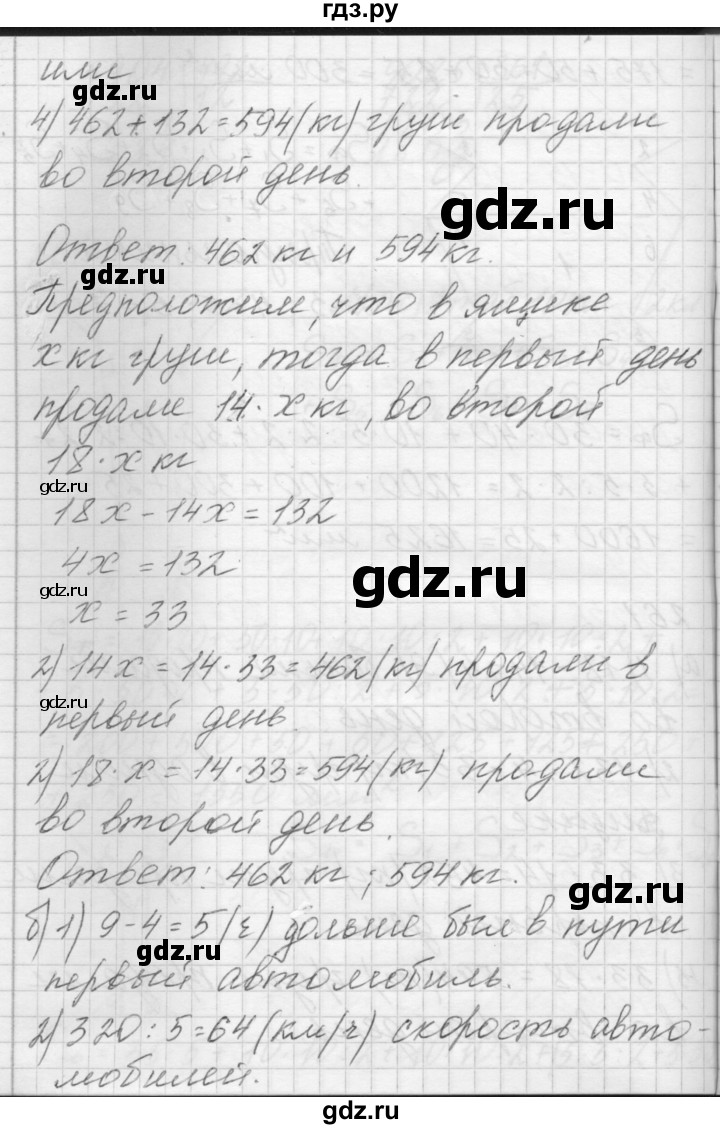 гдз.ру
или
4) 462 + 132 = 594 (кг) груш продали
во второй день.
Ответ: 462 кг и 594 кг.
Предположим, что в ящике
x кг груш, тогда в первый день
продали 14 · x кг, во второй
18 · x кг
18x - 14x = 132
4x = 132
x = 33
2) 14x = 14 · 33 = 462 (кг) продали в
первый день.
2) 18 · x = 14 · 33 = 594 (кг) продали
во второй день.
Ответ: 462 кг ; 594 кг.
б) 1) 9 - 4 = 5 (г) дольше был в пути
первый автомобиль.
2) 320 : 5 = 64 (км/ч) скорость авто-
мобилей.
gdz.ru
gdz.ru
gdz.ru
gdz.ru
gdz.ru
gdz.ru
gdz.ru
gdz.ru
gdz.ru
gdz.ru